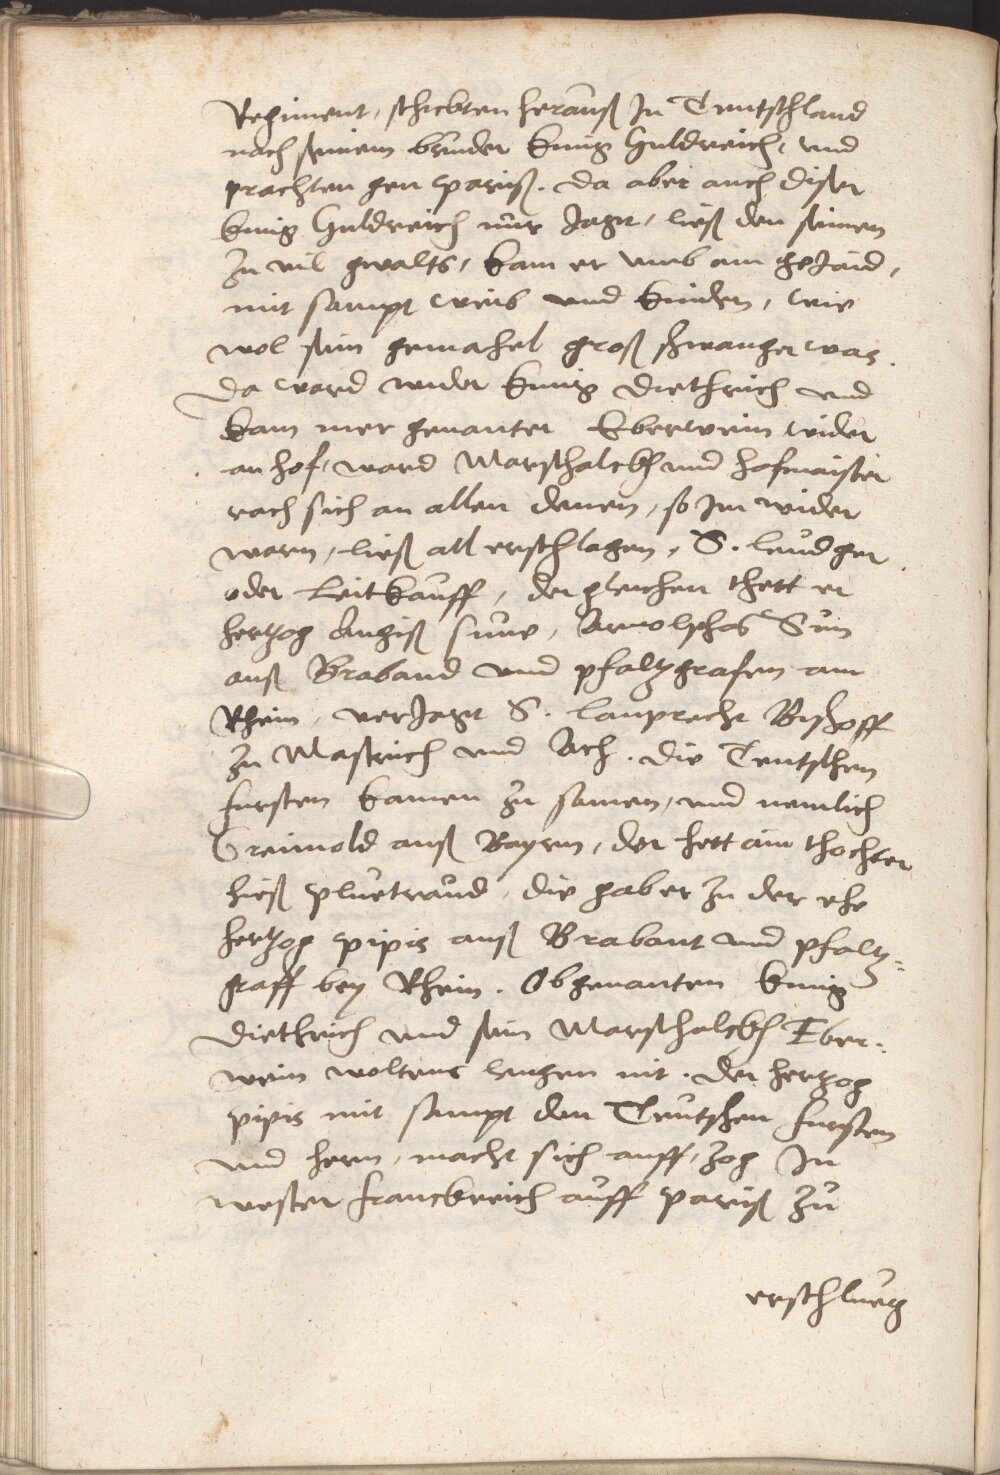 Regiment, schickten herauß Jn Teutschland
nach seinem bruder kunig Huldreich, und
prachten gen pariß. da aber auch diser
kunig Huldreich nur Jagt, ließ den seinen
zu vil gwalts, kam er umb am geJaid,
mit sampt weib und kinden, wie
wol sein gemahel groß schwanger was.
Da ward wider kunig Diethrich und
kam mer genanter Eberwein wider
an hof, ward Marschalckh und hofmaister
rach sich an allen denen, so Jm wider
waren, ließ all erschlagen, S. leudger
oder Leitkauff, der gleichen thett er
hertzog Angiß sune, Arnolphos Sun
auß Braband und pfaltzgrafen am
Rhein, verJagt S. lamprecht Bischoff
zu Mastrich und Ach. die Teutschen
fursten kamen zu samen, und nemlich
Greimold auß Bayrn, der hett ain thochter
hieß pluetraud, die gab er zu der ehe
hertzog pipis auß Brabant und pfaltz=
graff bey Rhein. Obgenanten kunig
Diethrich und sein Marschalckh Eber=
wein woltens leugen nit. der hertzog
pipis mit sampt den Teutschen fursten
und herrn, macht sich auff, zog Jn
wester franckreich auff pariß zu
erschlueg